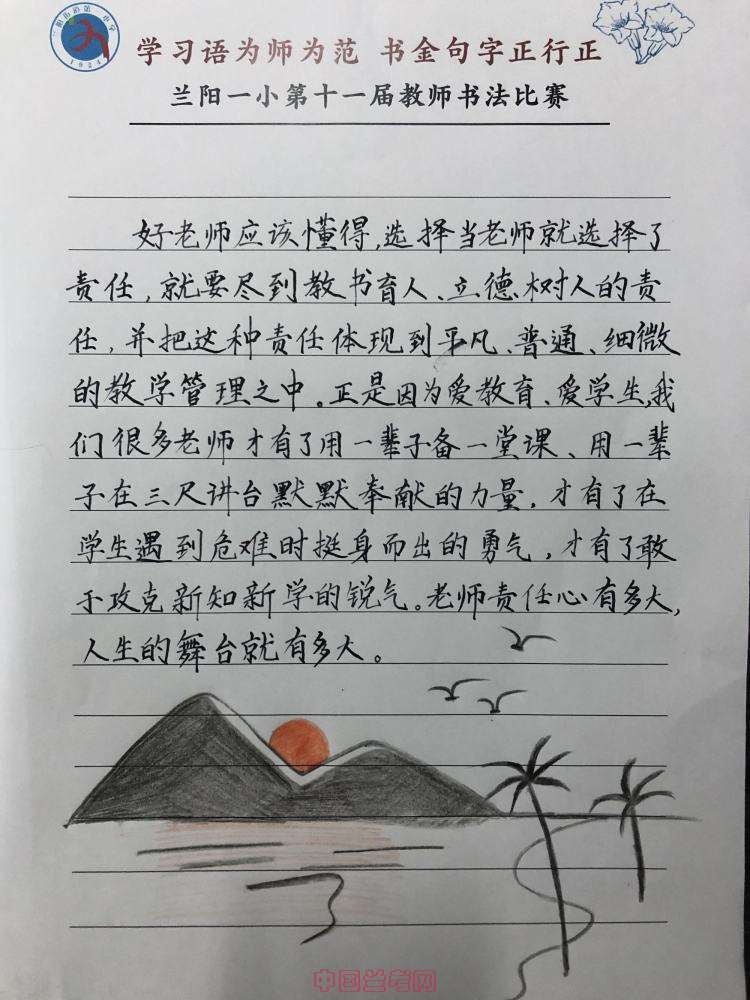 学习语为师为范 书金句字正行正
兰阳一小第十一届教师书法比赛
好老师应该懂得,选择当老师就选择了
责任,就要尽到教书育人、立德树人的责
任,并把这种责任体现到平凡、普通、细微
的教学管理之中。正是因为爱教育、爱学生,我
们很多老师才有了用一辈子备一堂课、用一辈
子在三尺讲台默默奉献的力量,才有了在
学生遇到危难时挺身而出的勇气,才有了敢
于攻克新知新学的锐气。老师责任心有多大,
人生的舞台就有多大。
中国兰考网